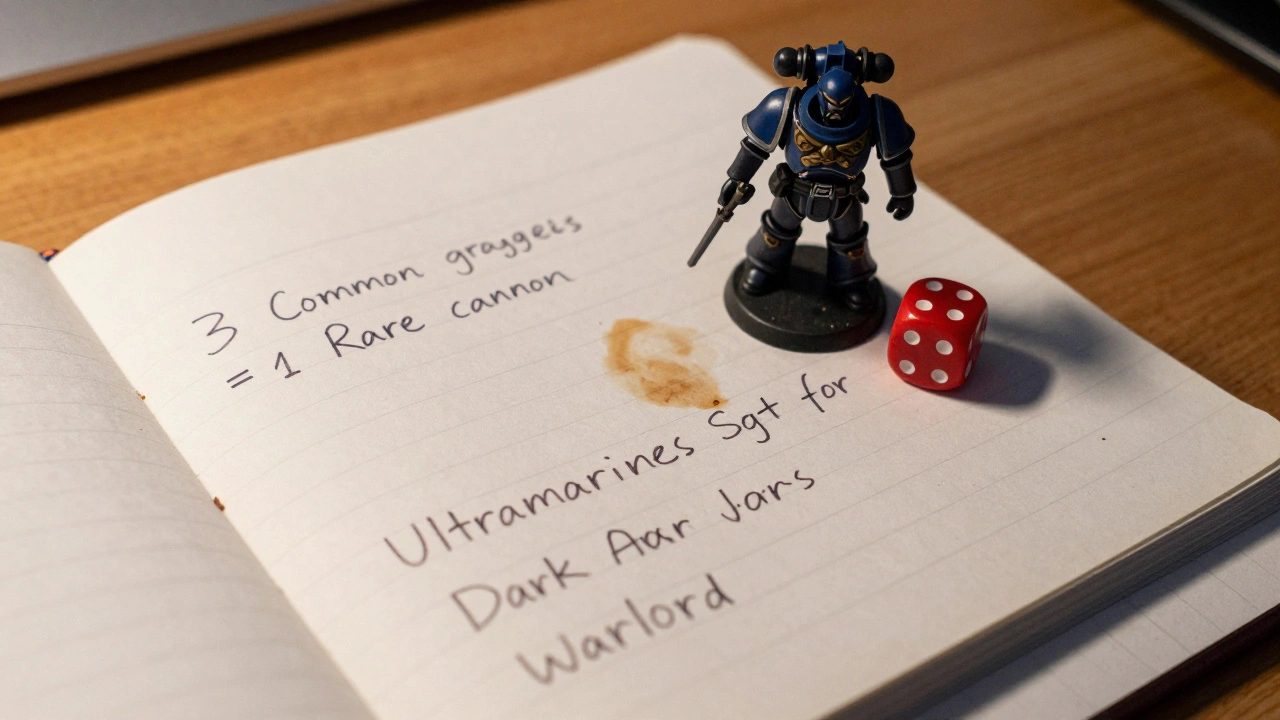 3 Common graggels
= 1 Rare cannon
Ultramarines Sgt for
Dark Aar Jars
Warlord